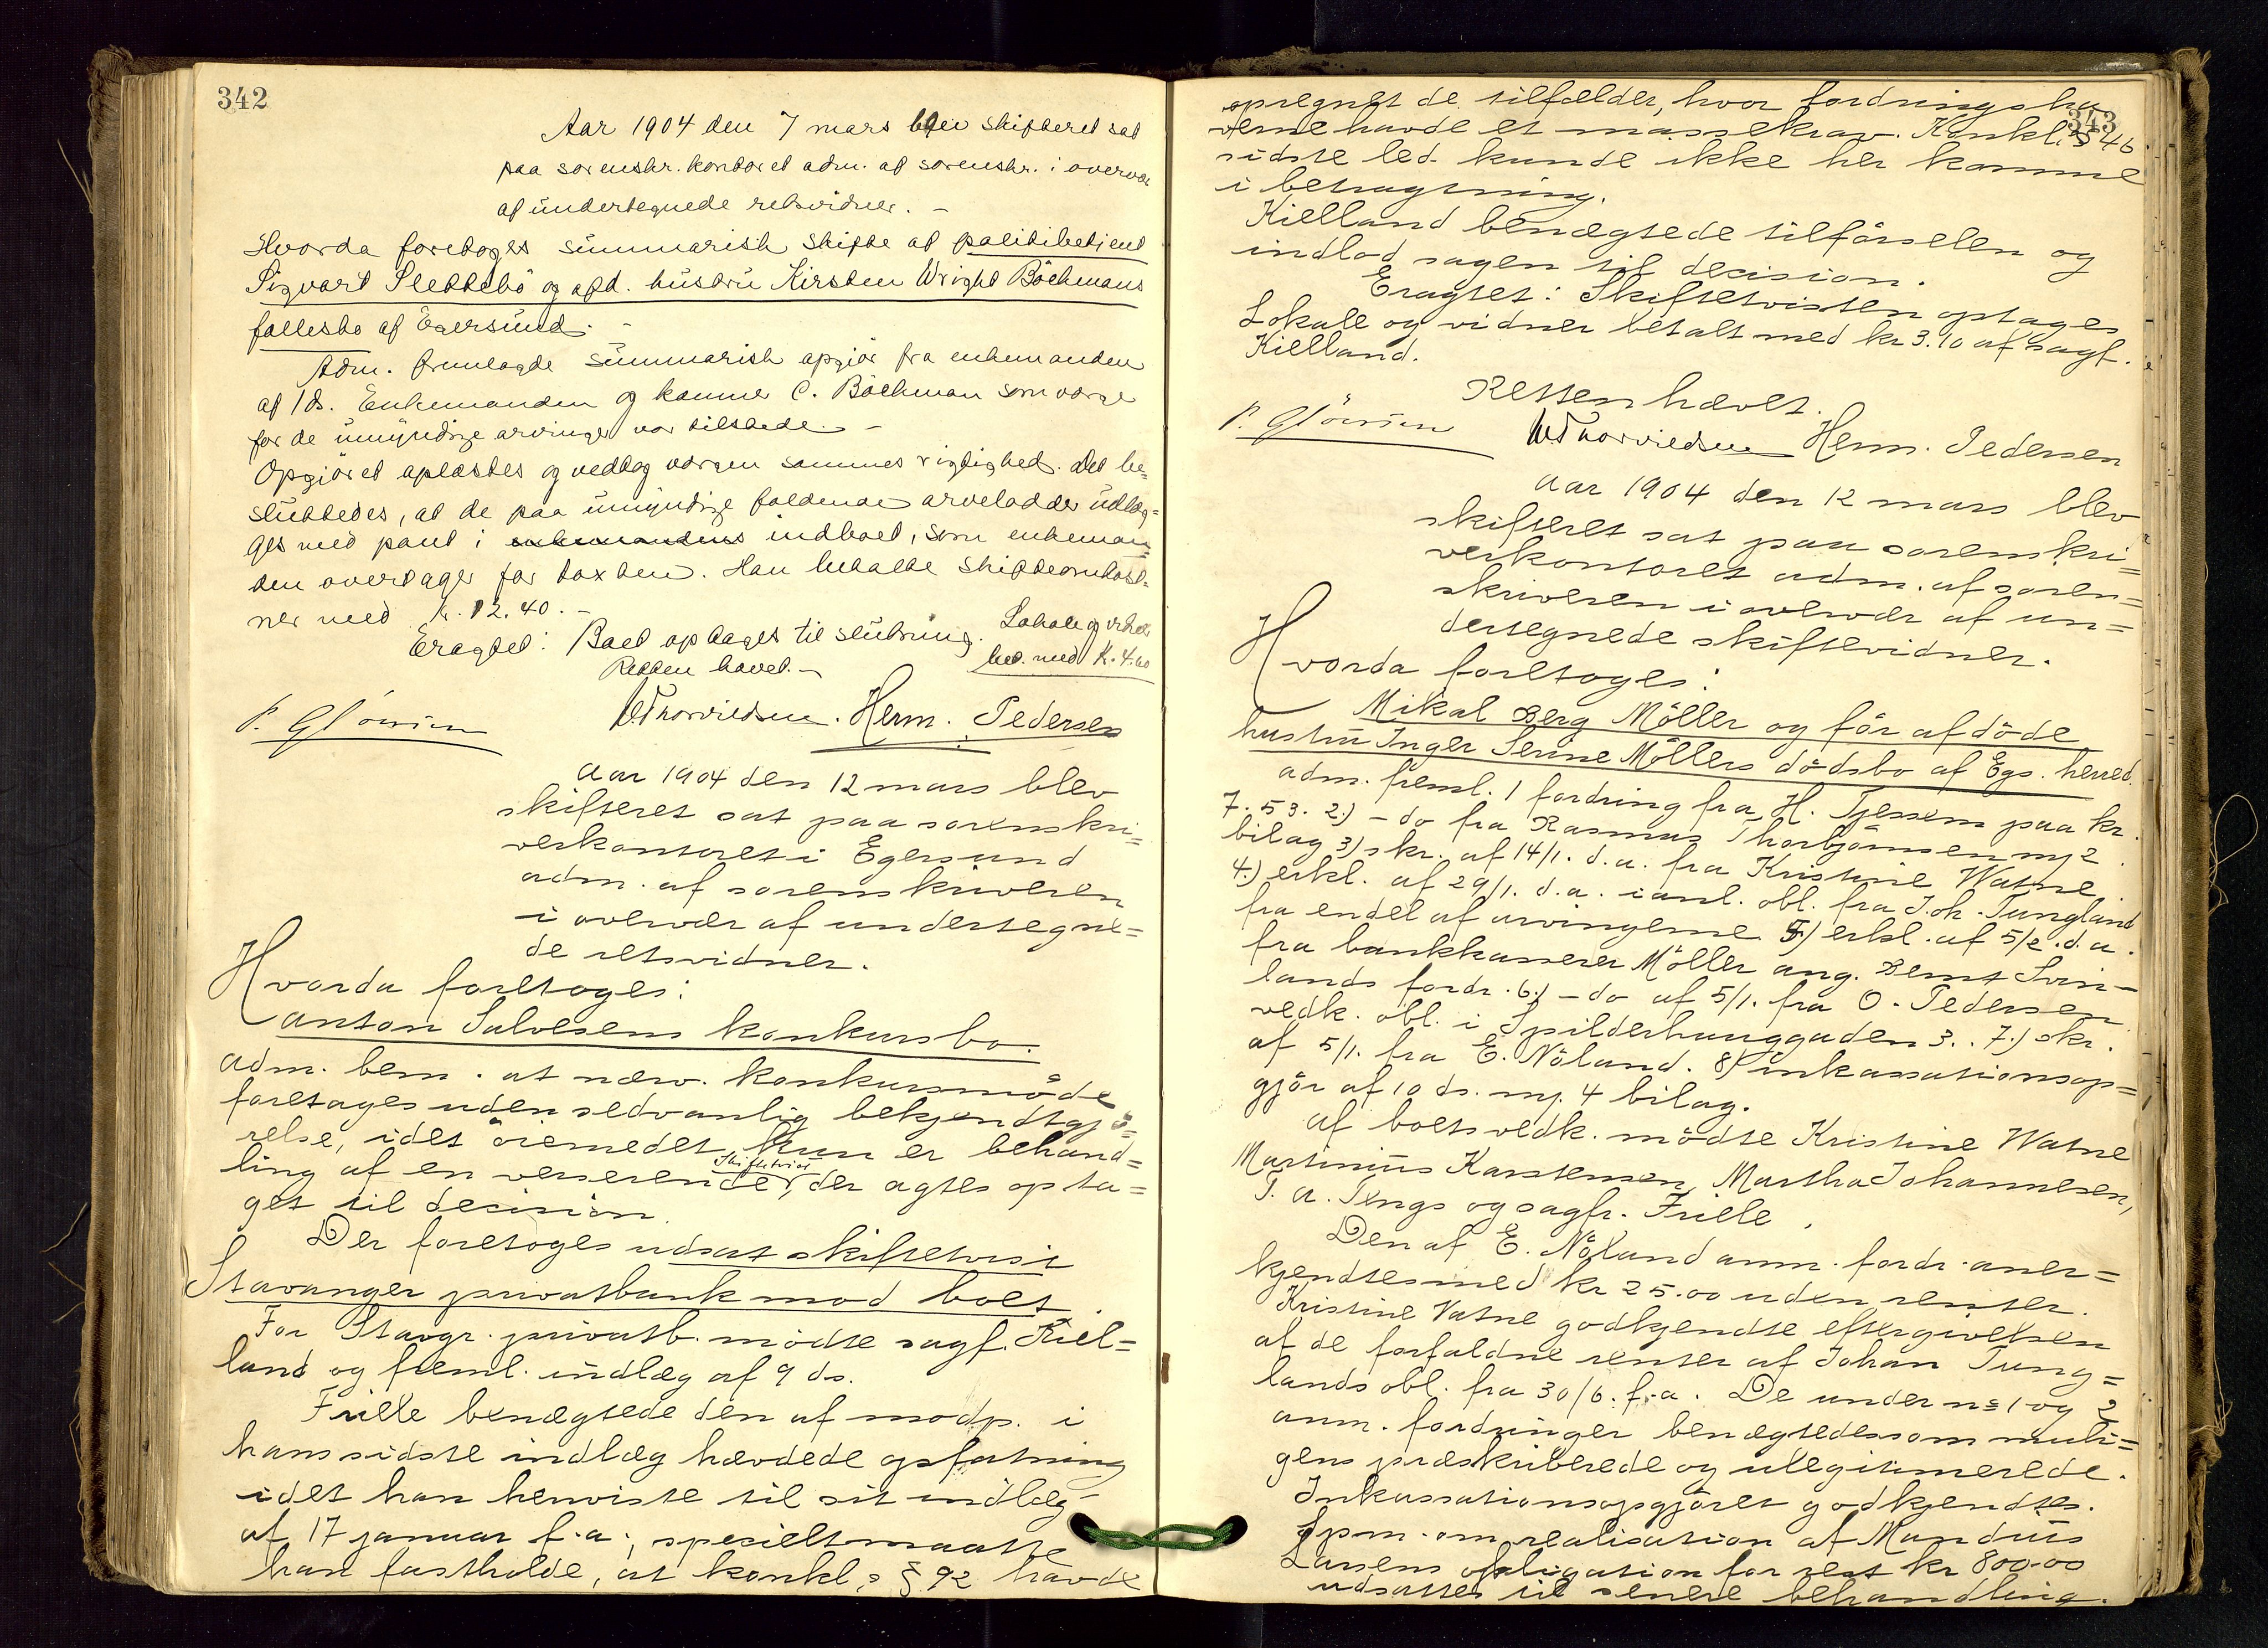 342
Aar 1904 den 7 mars blev skifteret sat
paa sorenskr. kontoret adm. af sorenskr. i overvær
af undertegnede retsvidner. -
Hvorda foretoges summarisk skifte af politibetjent
Sigvart Slettebö og afd. hustru Kirsten Wright Böckmans
fællesbo af Egersund. -
Adm. fremlagde summarisk opgjör fra enkemanden
af 1 ds. Enkemanden og C. Böckman som værge
for de umyndige arvinger var tilstede. -
Opgjöret oplæstes og vedtog værgen sammes rigtighed. Det be-
sluttedes, at de paa umyndige faldende arvelodder udlæg=
ges med pant i enkemandens indboet, som enkeman=
den overtager for taxten. Han betalte skifteomkost=
ner med k. 12.40. -
Eragtet: Boet optages til slutning. Lokale og vidner
Retten hævet. - bet. med K. 4.00
Herm. Pedersen
Aar 1904 den 12 mars blev
skifteret sat paa sorenskri=
verkontoret i Egersund
adm. af sorenskriveren
i overvær af undertegne=
de retsvidner.
Hvorda foretoges:
Anton Salvesens konkursbo.
Adm. bem. at nærv. konkursmöde
foretages uden sedvanlig bekjendtgjö=
relse, idet öiemedet kun er behand=
ling af en verserende skiftetvist, der agtes opta=
get til decision.
Der foretoges udsat skiftetvist
Stavanger privatbank mod boet.
For Stavgr. privatb. mödte sagf. Kiel=
land og freml. indlæg af 9 ds.
Frille benægtede den af modp. i
hans sidste indlæg hævdede opfatning
idet han henviste til sit indlæg
af 17 januar f.a., specielt maatte
han fastholde, at konkl.s § 92 havde
343
opregnet de tilfælder, hvor fordringsha
verne havde et massekrav. Konkl. § 46
sidste led kunde ikke her komme
i betragtning.
Kielland benægtede tilförselen og
indlod sagen til decision.
Eragtet: Skiftetvisten optages
Lokale og vidner betalt med kr 3.10 af sagf.
Kielland.
Retten hævet.
Herm. Pedersen
Aar 1904 den 12 mars blev
skifteret sat paa sorenskri=
verkontoret adm. af soren=
skriveren i overvær af un=
dertegnede skiftevidner.
Hvorda foretoges:
Mikal Berg Möller og för afdöde
hustru Inger Serine Möllers dödsbo af Egs. herred.
Adm. freml. 1 fordring fra H. Tjessem paa kr.
7.53. 2.) - do fra Rasmus Thorbjörnsen m/ 2
bilag 3) skr. af 14/1. d.a. fra Kristine Watne
4.) erkl. af 29/1. d.a. i anl. obl. fra Joh. Tungland
fra endel af arvingerne 5) erkl. af 5/2. d.a.
fra bankkasserer Möller ang. Bernt Svin-
lands fordr. 6.) - do af 5/1. fra O. Pedersen
vedk. obl. i Spilderhauggaden 3.. 7.) skr.
af 5/1. fra E. Nöland. 8) inkassationsop=
gjör af 10 ds. m/ 4 bilag.
Af boets vedk. mödte Kristine Watne
Martinius Karstensen, Martha Johannesen,
T. A. Tengs og sagfr. Frille.
Den af E. Nöland anm. fordr. aner=
kjendtes med kr 25.00 uden renter.
Kristine Vatne godkjendte eftergivelsen
af de forfaldne renter af Johan Tung=
lands obl. fra 30/6. f.a. De under no 1 og 2
anm. fordringer benægtedes som muli=
gens præskriberede og ulegitimerede.
Inkassationsopgjöret godkjendtes.
Spm. om realisation af Mandius
Larsens obligation for rest kr 800.00
udsattes til senere behandling.